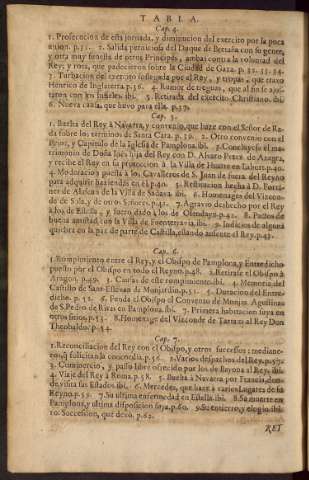 TABLA.
Cap. 4.
1. Prosecucion de esta jornada, y diminucion del exercito por la poca
union. p. 31. 2. Salida perniciosa del Duque de Bretaña con su gente,
y otra muy funesta de otros Principes, ambas contra la voluntad del
Rey; y rota, que padecieron sobre la Ciudad de Gaza. p. 32. 33. 34.
3. Turbacion del exercito sosegada por el Rey, y tropas, que traxo
Henrico de Inglaterra. p. 36. 4. Rumor de treguas, que al fin se
con los Infieles. ibi. 5. Retirada del exercito Christiano. ibi.
6. Nueva causa, que huvo para ella. p. 37.
Cap. 5.
1. Buelta del Rey à Navarra, y convenio, que haze con el Señor de Ra-
da sobre los terminos de Santa Cara. p. 39. 2. Otro convenio con el
Prior, y Capitulo de la Iglesia de Pamplona. ibi. 3. Concluyese el ma-
trimonio de Doña Inès hija del Rey con D. Alvaro Perez de Azagra,
y recibe el Rey en su proteccion à la Villa de Huarte en Labort. p. 40.
4. Moderacion puesta à los Cavalleros de S. Juan de fuera del Reyno
para adquirir haziendas en èl. p. 40. 5. Restitucion hecha à D.
ner de Alascun de la Villa de Sadava. ibi. 6. Homenages del Vizcon-
de de Sola, y de otros Señores. p. 41. 7. Agravio deshecho por el Rey
à los de Estella, y fuero dado à los de Olendayn. p. 42. 8. Pactos de
buena amistad con la Villa de Fuenterravia. ibi. 9. Indicios de alguna
quiebra en la paz de parte de Castilla, estando ausente el Rey. p. 43.
Cap. 6.
1. Rompimiento entre el Rey, y el Obispo de Pamplona, y Entredicho
puesto por el Obispo en todo el Reyno. p. 48. 2. Retirase el Obispo à
Aragon. p. 49. 3. Causas de este rompimiento. ibi. 4. Memoria del
Castillo de San-Estevan de Monjardin. p. 51. 5. Duracion del Entre-
dicho. p. 52. 6. Funda el Obispo el Convento de Monjas Agustinas
de S. Pedro de Ribas en Pamplona. ibi. 7. Primera habitacion suya en
otros sitios. p. 53. 8. Homenage del Vizconde de Tartax al Rey Don
Theobaldo. p. 54.
Cap. 7.
1. Reconciliacion del Rey con el Obispo, y otros sucessos: mediane-
ros, q̃ solicitan la concordia. p. 56. 2. Varios despachos del Rey. p. 57.
3. Comercio, y passo libre ofrecido por los de Bayona al Rey. ibi.
4. Viaje del Rey à Roma. p. 58. 5. Buelta à Navarra por Francia, don-
de visita sus Estados. ibi. 6. Mercedes, que haze à varios Lugares de su
Reyno. p. 59. 7. Su ultima enfermedad en Estella. ibi. 8. Su muerte en
Pamplona, y ultima disposicion suya. p. 60. 9. Su entierro, y elogio. ibi.
10. Succession, que dexò. p. 62.
REY